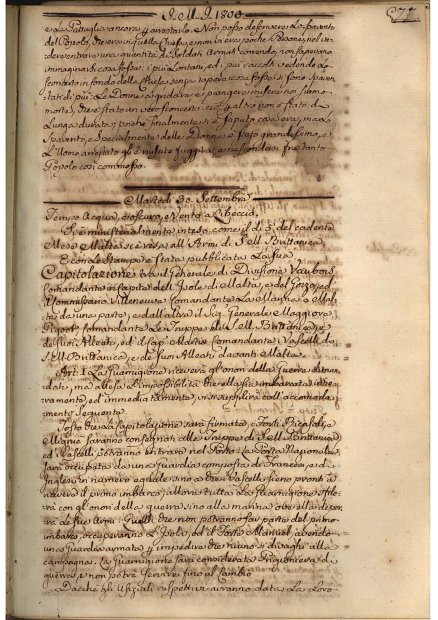 I. M. I. 1800.
277
e la Pattuglia ancora, e arrestarlo. Non posso descrivere lo spavento
del Popolo, che era in quella Chiesa, e non in eran poche Persone, nel ve-
der entrare una quantità di Soldati Armati correndo, non sapevano
immaginarsi cosa fosse: i più lontani, ed i più raccolti vedendo lo
sconcerto in fondo della Chiesa, senza saper cosa fosse si sono spaven-
tati di più: Le Donne a gridare, e i
morte, che è stato un vero sconcerto: ciò per altro non è stato di
lunga durata; poiché finalmente si è saputo cosa era, ma lo
Spavento, e Specialmente delle Donne è stato grandissimo, e
L'Uomo arrestato gli è riuscito fuggire, e nascondersi fra tanto
Popolo così commosso.
Martedì 30. Settembre
Tempo Acqua, e oscuro, e Vento a Libeccio.
Si è ministerialmente inteso come il dì 5. del cadente
Mese Malta si è resa all' Armi di S. M. Brittanica
E con le Stampe è stata pubblicata la sua
Capitolazione tra il Generale di Divisione Vaubois
Comandante in Capite dell' Isole di Malta, e del Gozo, ed
il Commissario Villeneuve Comandante la Marina a Mal-
ta da una parte, e dall' altra il Sig. Generale Maggiore
Pigot, Comandante le Truppe di S. M. Brittanica, e
de suoi Alleati, ed il Cap. Martin Comandante i Vascelli di
S. M. Brittanica, e de suoi Alleati davanti Malta.
Art. 1. La Guarnigione riceverà gl' onori della Guerra diman-
dati, ma attesa l' impossibilità che ella sia imbarcata inte-
ramente, ed immediatamente, vi si supplirà coll' accomoda-
mento Seguente.
Tosto che la Capitolazione sarà firmata, i Forti Ricasoli, e
Tignè saranno consegnati alle Truppe di S. M. Brittanica
ed i Vascelli potranno entrare nel Porto. La Porta Nazionale
sarà occupata da una Guardia composta di Francesi, e d'
Inglesi in numero eguale sino a che i Vascelli sieno pronti a
ricevere il primo imbarco; allora tutta la Guarnigione sfile-
rà con gl' onori della guerra sino alla marina, ove ella depor-
rà le sue Armi: Quelli che non potranno far parte del primo
imbarco, occuperanno l' Isola, ed il Forte Manuel, avendo
una Guardia armata p. impedire che niuno si divaghi alla
campagna. La Guarnigione sarà considerata Prigioniera di
guerra, e non potrà servire fino al Cambio
Da che gli Ufiziali respettivi avranno data la loro